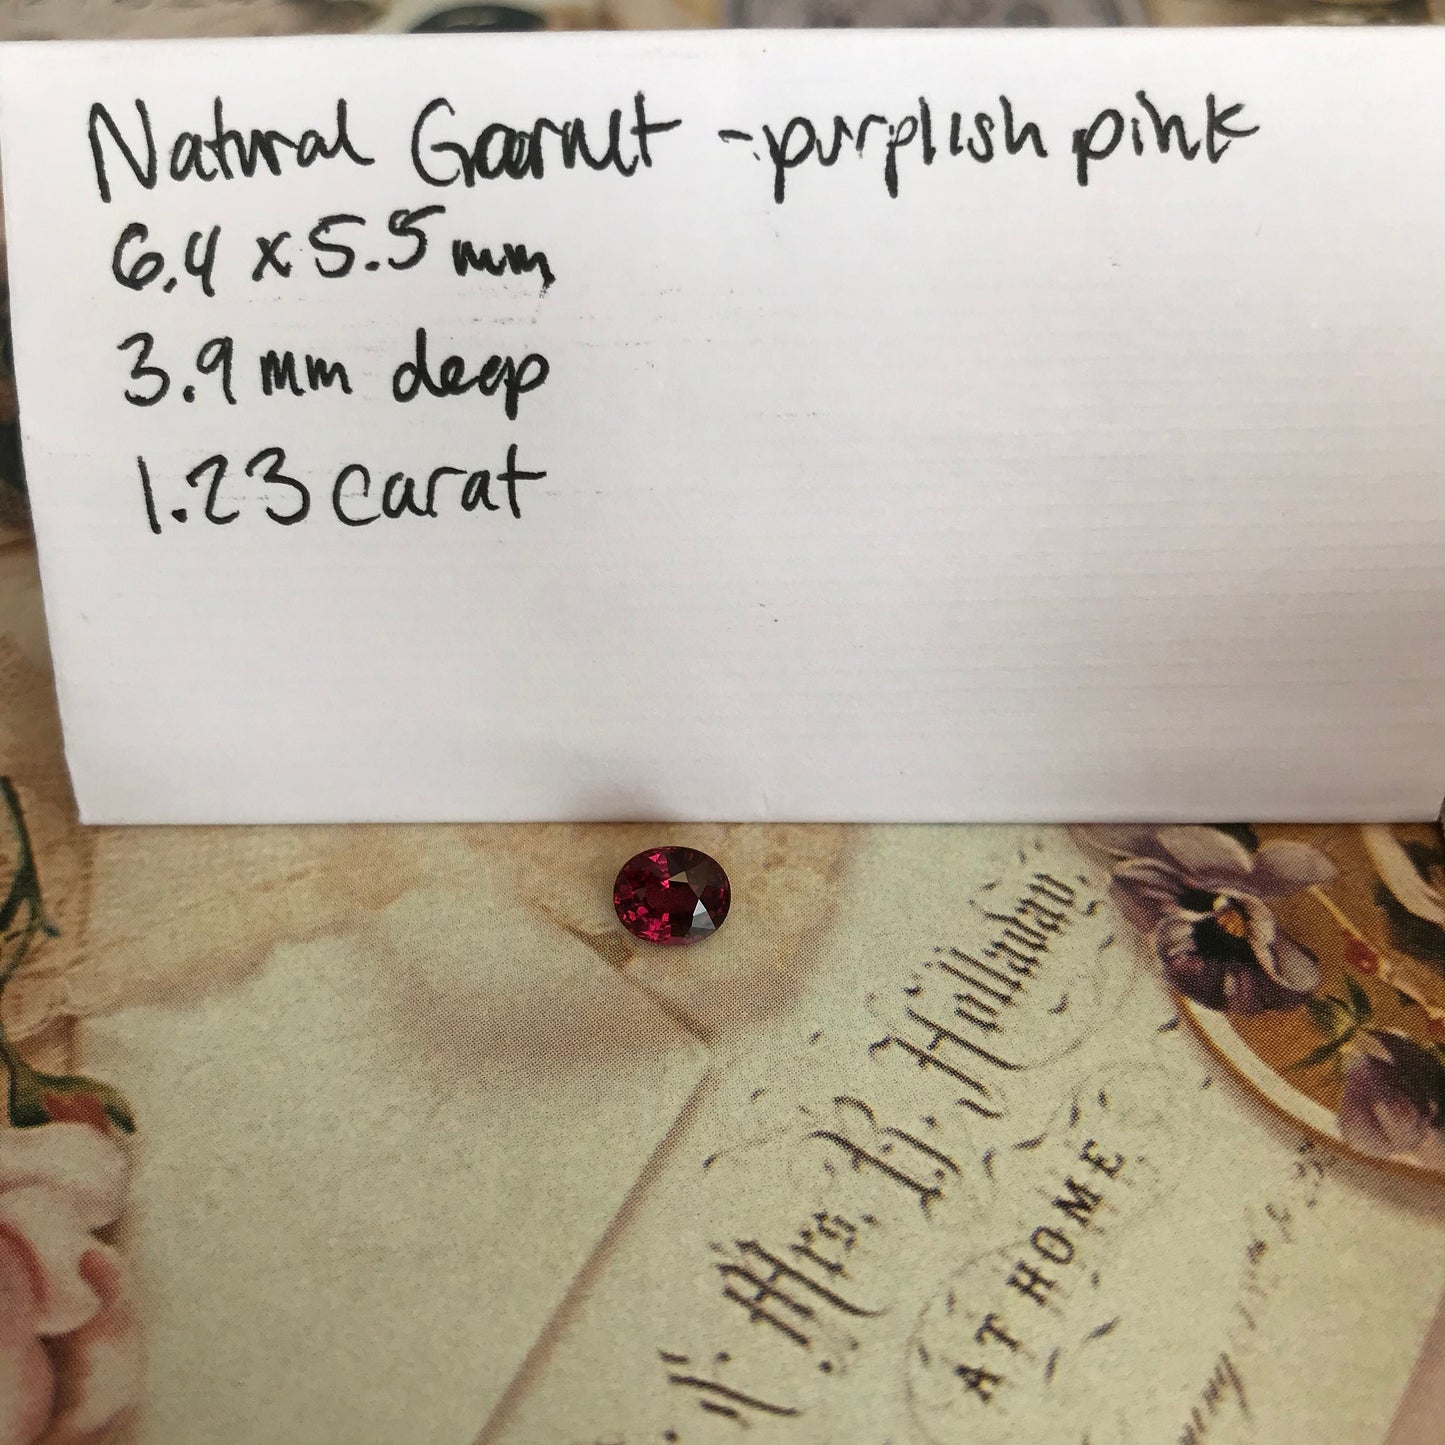 Natural Garnet - purplish pink
6.4 x 5.5 mm
3.9 mm deep
1.23 carat
Mrs. B. Holladay.
AT HOME